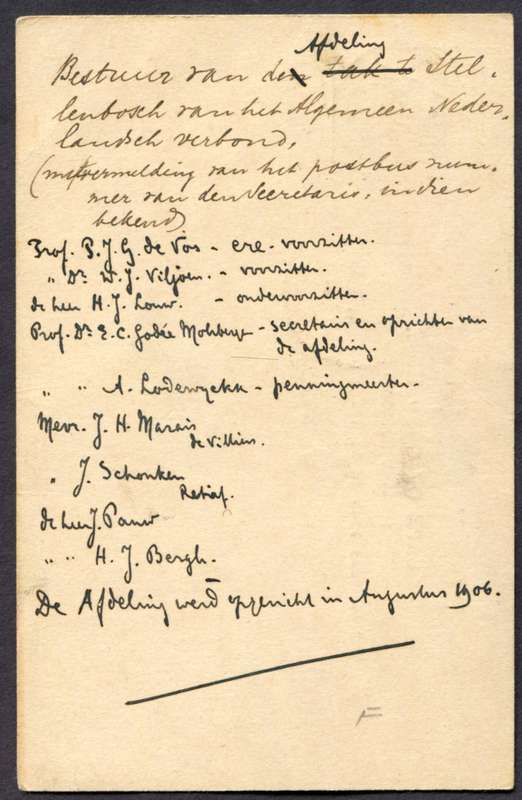 Afdeling
Bestuur van den tak te Stel-
lenbosch van het Algemeen Neder-
landsch verbond,
(met vermelding van het postbus num-
mer van den Secretaris, indien
bekend)
Prof. P. J. G. de Vos - eere-voorzitter.
" Dr. W. J. Viljoen. - voorzitter.
de heer H. J. Louw. - ondervoorzitter.
Prof. Dr. E. C. Godée Molsbergen - secretaris en oprichter van
de afdeling.
" " A. Lodewyckx - penningmeester.
Mevr. J. H. Marais
de Villiers.
" J. Schonken
Retief.
de heer J. Pauw
" " H. J. Bergh.
De Afdeling werd opgericht in Augustus 1906.